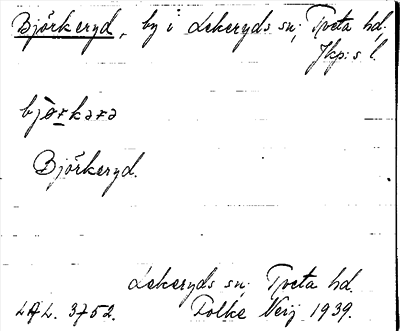 Björkeryd, by i Lekeryds sn; Tveta hd.
Jkp:s l.
bjɵ̀rkərə
Björkeryd.
Lekeryds sn; Tveta hd.
LAL. 3752. Folke Neij 1939.